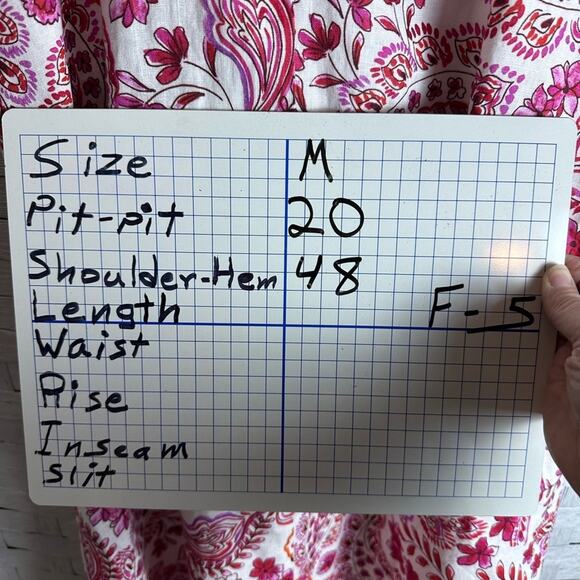 Size M
Pit-pit 20
Shoulder-Hem 48
Length F-5
Waist
Rise
Inseam
Slit